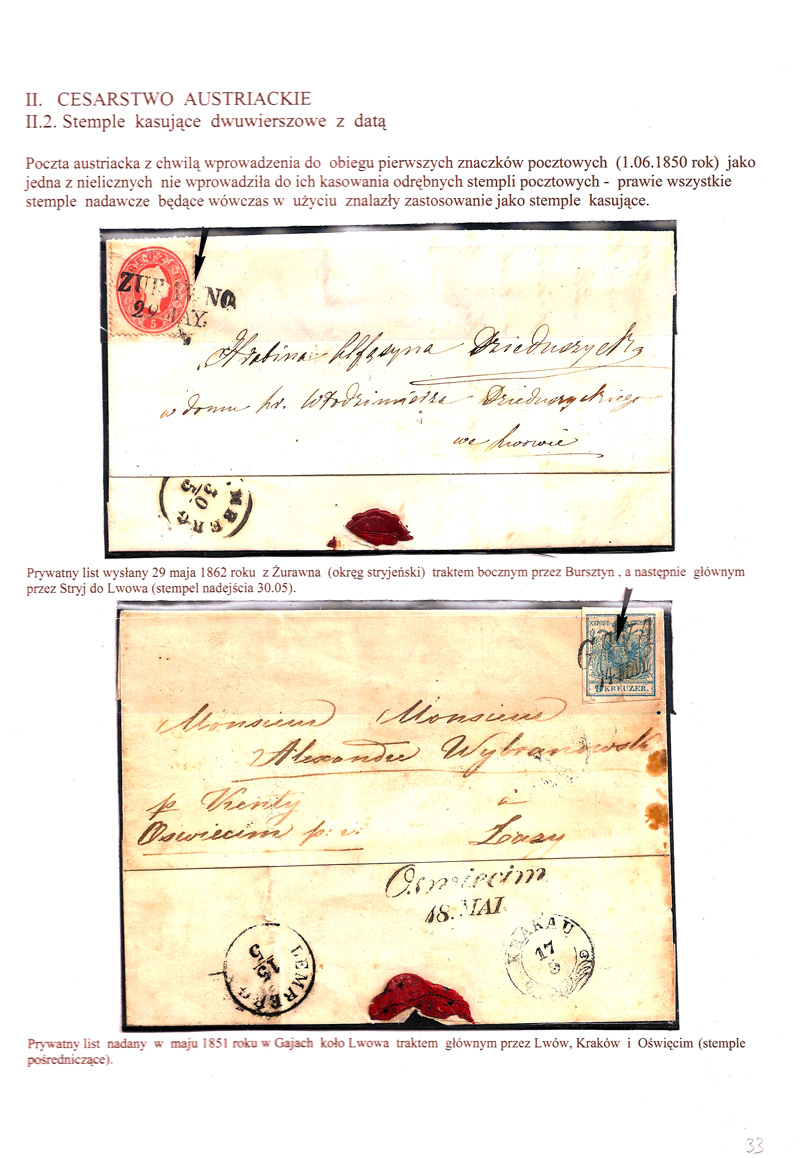 II. CESARSTWO AUSTRIACKIE
II.2. Stemple kasujące dwuwierszowe z datą
Poczta austriacka z chwilą wprowadzenia do obiegu pierwszych znaczków pocztowych (1.06.1850 rok) jako
jedna z nielicznych nie wprowadziła do ich kasowania odrębnych stempli pocztowych - prawie wszystkie
stemple nadawcze będące wówczas w użyciu znalazły zastosowanie jako stemple kasujące.
29 MAY.
5
Hrabina Alfonsyna Dzieduszycka
w domu hr. Włodzimierza Dzieduszyckiego
we Lwowie
30/5
Prywatny list wysłany 29 maja 1862 roku z Żurawna (okręg stryjeński) traktem bocznym przez Bursztyn , a następnie głównym
przez Stryj do Lwowa (stempel nadejścia 30.05).
9 KREUZER.
Monsieur Monsieur
Alexandre Wybranowski
p Kenty à
Oswiecim Łazy
Oswiecim
18. MAI.
LEMBERG
15/5
KRAKAU
17
5
Prywatny list nadany w maju 1851 roku w Gajach koło Lwowa traktem głównym przez Lwów, Kraków i Oświęcim (stemple
pośredniczące).
33